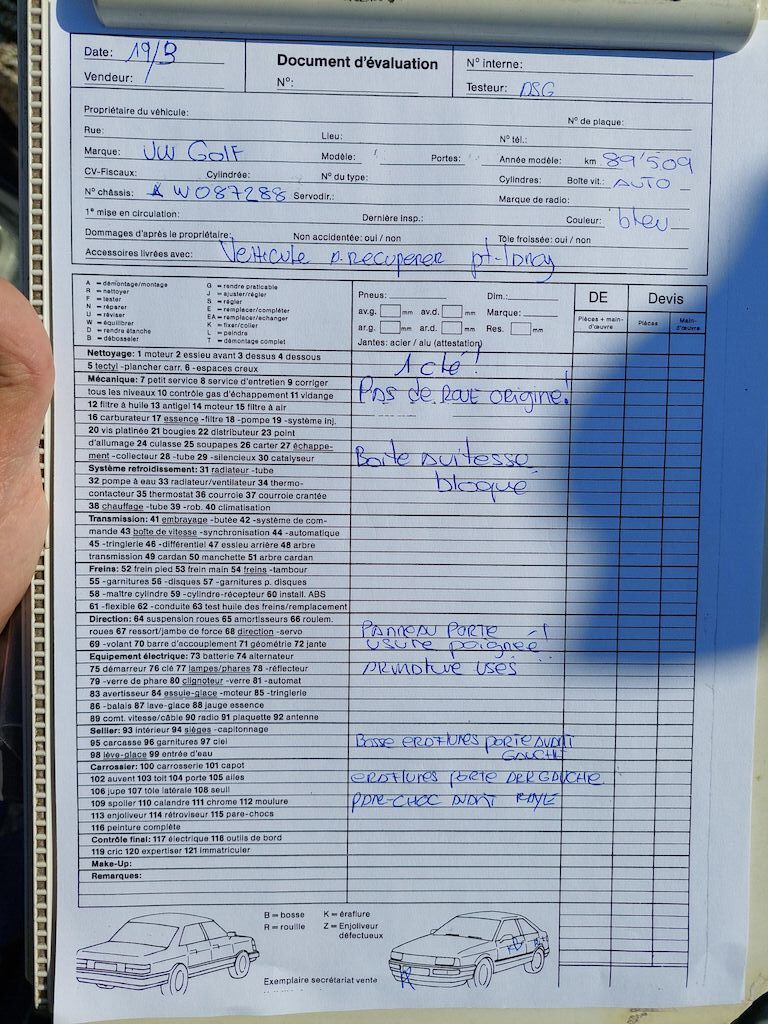 Date: 19/3
Document d'évaluation
N° interne:
Vendeur:
N°:
Testeur: DSG
Propriétaire du véhicule:
N° de plaque:
Rue:
Lieu:
N° tél.:
Marque: VW GOLF
Modèle:
Portes:
Année modèle:
km 89'509
CV-Fiscaux:
Cylindrée:
N° du type:
Cylindres:
Boîte vit.: AUTO
N° châssis: W087288
Servodir.:
Marque de radio:
1e mise en circulation:
Dernière insp.:
Couleur: bleu
Dommages d'après le propriétaire:
Non accidentée: oui / non
Tôle froissée: oui / non
Accessoires livrées avec: Vehicule a recuperer pt-lancy
A = démontage/montage
R = nettoyer
F = tester
N = réparer
U = réviser
W = équilibrer
D = rendre étanche
B = débosseler
G = rendre praticable
J = ajuster/régler
S = régler
E = remplacer/compléter
EA = remplacer/échanger
K = fixer/coller
L = peindre
T = démontage complet
Pneus:
Dim.:
av.g. mm av.d. mm Marque:
ar.g. mm ar.d. mm Res. mm
Jantes: acier / alu (attestation)
DE
Devis
Pièces + main-d'œuvre
Pièces
Main-d'œuvre
Nettoyage: 1 moteur 2 essieu avant 3 dessus 4 dessous
5 tectyl -plancher carr. 6 -espaces creux
1 clé!
Mécanique: 7 petit service 8 service d'entretien 9 corriger
tous les niveaux 10 contrôle gaz d'échappement 11 vidange
PAS de ROUE ORIGINE!
12 filtre à huile 13 antigel 14 moteur 15 filtre à air
16 carburateur 17 essence -filtre 18 -pompe 19 -système inj.
20 vis platinée 21 bougies 22 distributeur 23 point
d'allumage 24 culasse 25 soupapes 26 carter 27 échappe-
ment -collecteur 28 -tube 29 -silencieux 30 catalyseur
Boite a vitesse
Système retroidissement: 31 radiateur -tube
32 pompe à eau 33 radiateur/ventilateur 34 thermo-
bloque
contacteur 35 thermostat 36 courroie 37 courroie crantée
38 chauffage -tube 39 -rob. 40 climatisation
Transmission: 41 embrayage -butée 42 -système de com-
mande 43 boîte de vitesse -synchronisation 44 -automatique
45 -tringlerie 46 -différentiel 47 essieu arrière 48 arbre
transmission 49 cardan 50 manchette 51 arbre cardan
Freins: 52 frein pied 53 frein main 54 freins -tambour
55 -garnitures 56 -disques 57 -garnitures p. disques
58 -maître cylindre 59 -cylindre-récepteur 60 install. ABS
61 -flexible 62 -conduite 63 test huile des freins/remplacement
Direction: 64 suspension roues 65 amortisseurs 66 roulem.
roues 67 ressort/jambe de force 68 direction -servo
PANNEAU PORTE !
69 -volant 70 barre d'accouplement 71 géométrie 72 jante
usure poignée
Equipement électrique: 73 batterie 74 alternateur
75 démarreur 76 clé 77 lampes/phares 78 -réflecteur
ARMATURE USES
79 -verre de phare 80 clignoteur -verre 81 -automat
83 avertisseur 84 essuie-glace -moteur 85 -tringlerie
86 -balais 87 lave-glace 88 jauge essence
89 comt. vitesse/câble 90 radio 91 plaquette 92 antenne
Sellier: 93 intérieur 94 sièges -capitonnage
95 carcasse 96 garnitures 97 ciel
BOSSE ERAFLURES PORTE AVANT
98 lève-glace 99 entrée d'eau
GAUCHE
Carrossier: 100 carrosserie 101 capot
102 auvent 103 toit 104 porte 105 ailes
ERAFLURES PORTE DER GAUCHE
106 jupe 107 tôle latérale 108 seuil
109 spoiler 110 calandre 111 chrome 112 moulure
PARE-CHOC AVANT RAYE
113 enjoliveur 114 rétroviseur 115 pare-chocs
116 peinture complète
Contrôle final: 117 électrique 118 outils de bord
119 cric 120 expertiser 121 immatriculer
Make-Up:
Remarques:
B = bosse
K = éraflure
R = rouille
Z = Enjoliveur défectueux
Exemplaire secrétariat vente